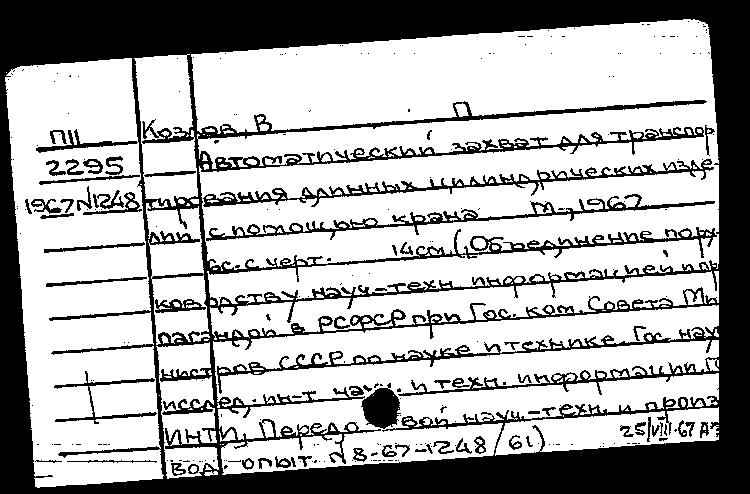 П11 Козлов, В П
2295 Автоматический захват для транспор
1967 №1248 тирования длинных цилиндрических изде-
лий с помощью крана М., 1967
6с. с черт. 14см. (Объединение по ру-
ководству науч-техн. информацией и про
пагандой в РСФСР при Гос. ком. Совета Ми
нистров СССР по науке и технике. Гос. науч
исслед. ин-т науч. и техн. информации. Г
ИНТИ, Передовой науч-техн. и произ
вод. опыт. №8-67-1248/61) 25/VIII-67